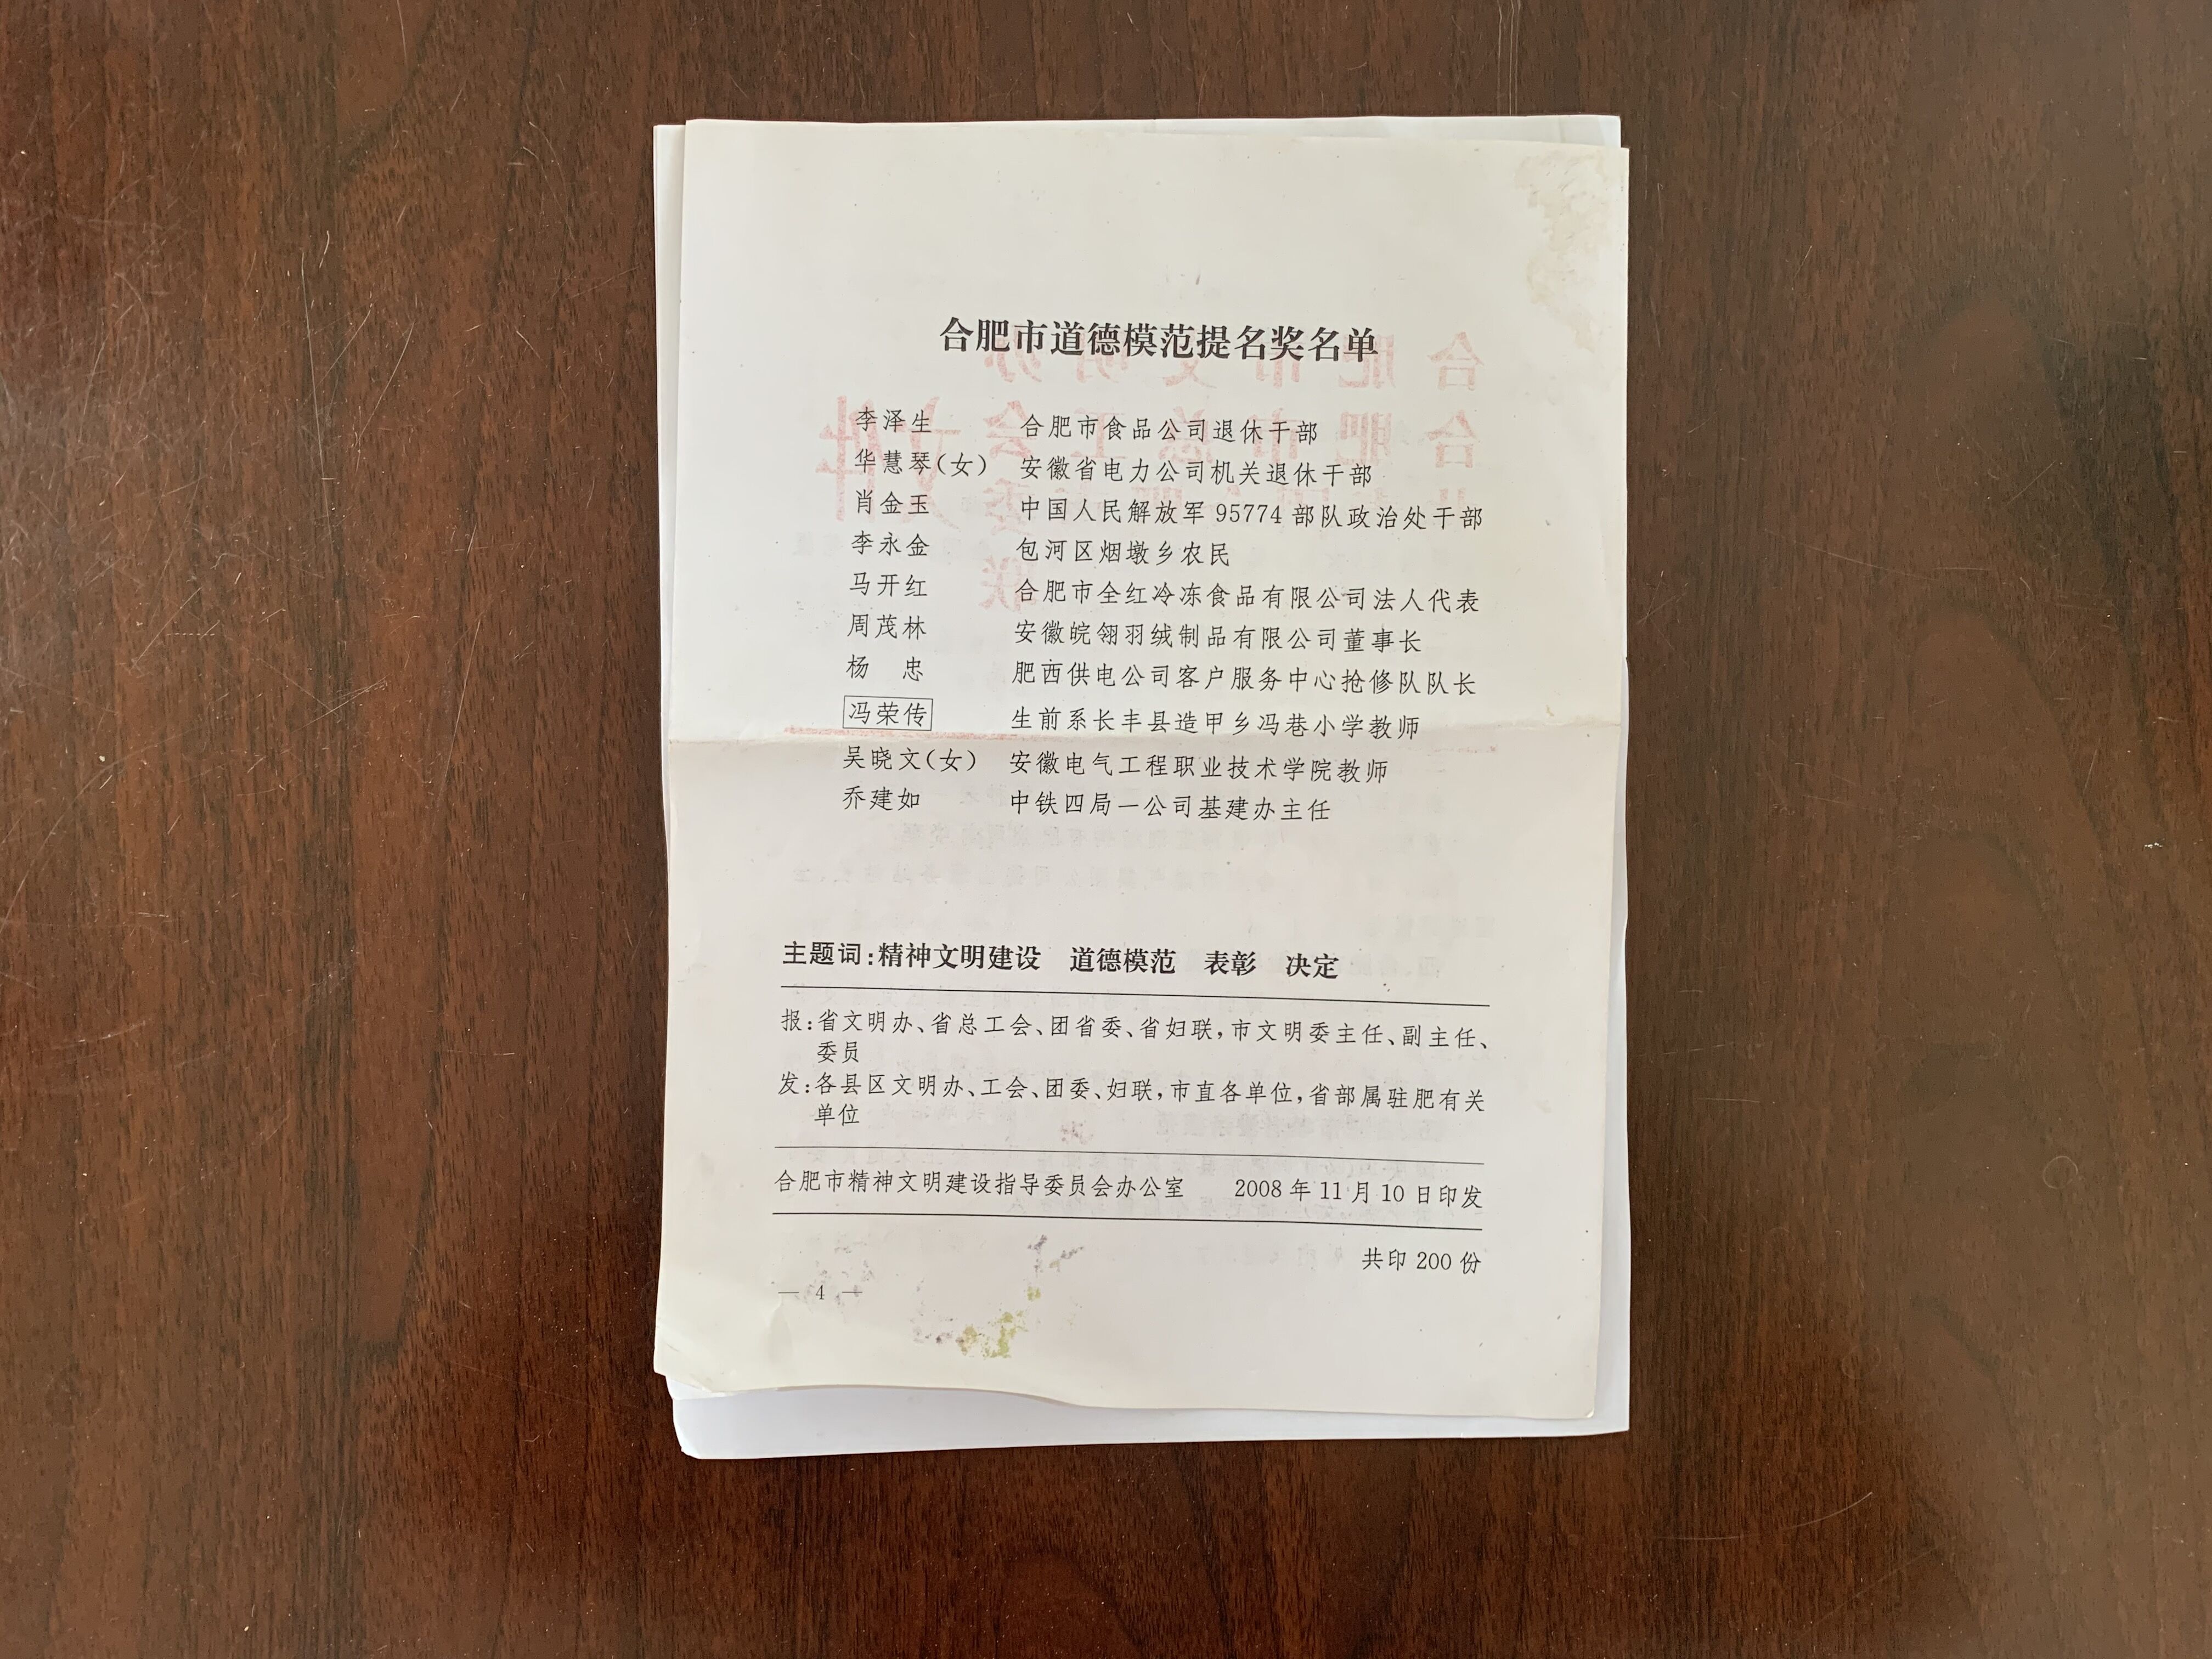 合肥市道德模范提名奖名单
李泽生 合肥市食品公司退休干部
华慧琴(女) 安徽省电力公司机关退休干部
肖金玉 中国人民解放军95774部队政治处干部
李永金 包河区烟墩乡农民
马开红 合肥市全红冷冻食品有限公司法人代表
周茂林 安徽皖翎羽绒制品有限公司董事长
杨 忠 肥西供电公司客户服务中心抢修队队长
冯荣传 生前系长丰县造甲乡冯巷小学教师
吴晓文(女) 安徽电气工程职业技术学院教师
乔建如 中铁四局一公司基建办主任
主题词:精神文明建设 道德模范 表彰 决定
报:省文明办、省总工会、团省委、省妇联,市文明委主任、副主任、
委员
发:各县区文明办、工会、团委、妇联,市直各单位,省部属驻肥有关
单位
合肥市精神文明建设指导委员会办公室 2008年11月10日印发
共印200份
— 4 —